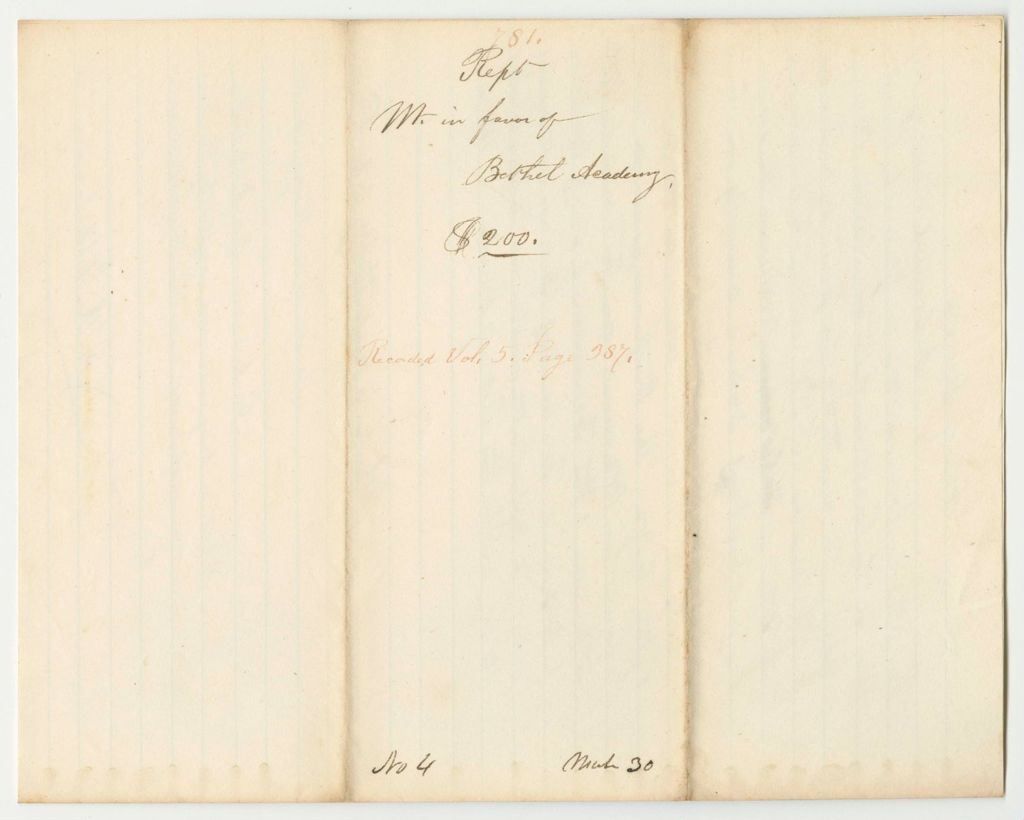 781.
Rept
Wt. in favor of
Bethel Academy,
$200.
Recorded Vol. 5. Page 387.
No 4 March 30